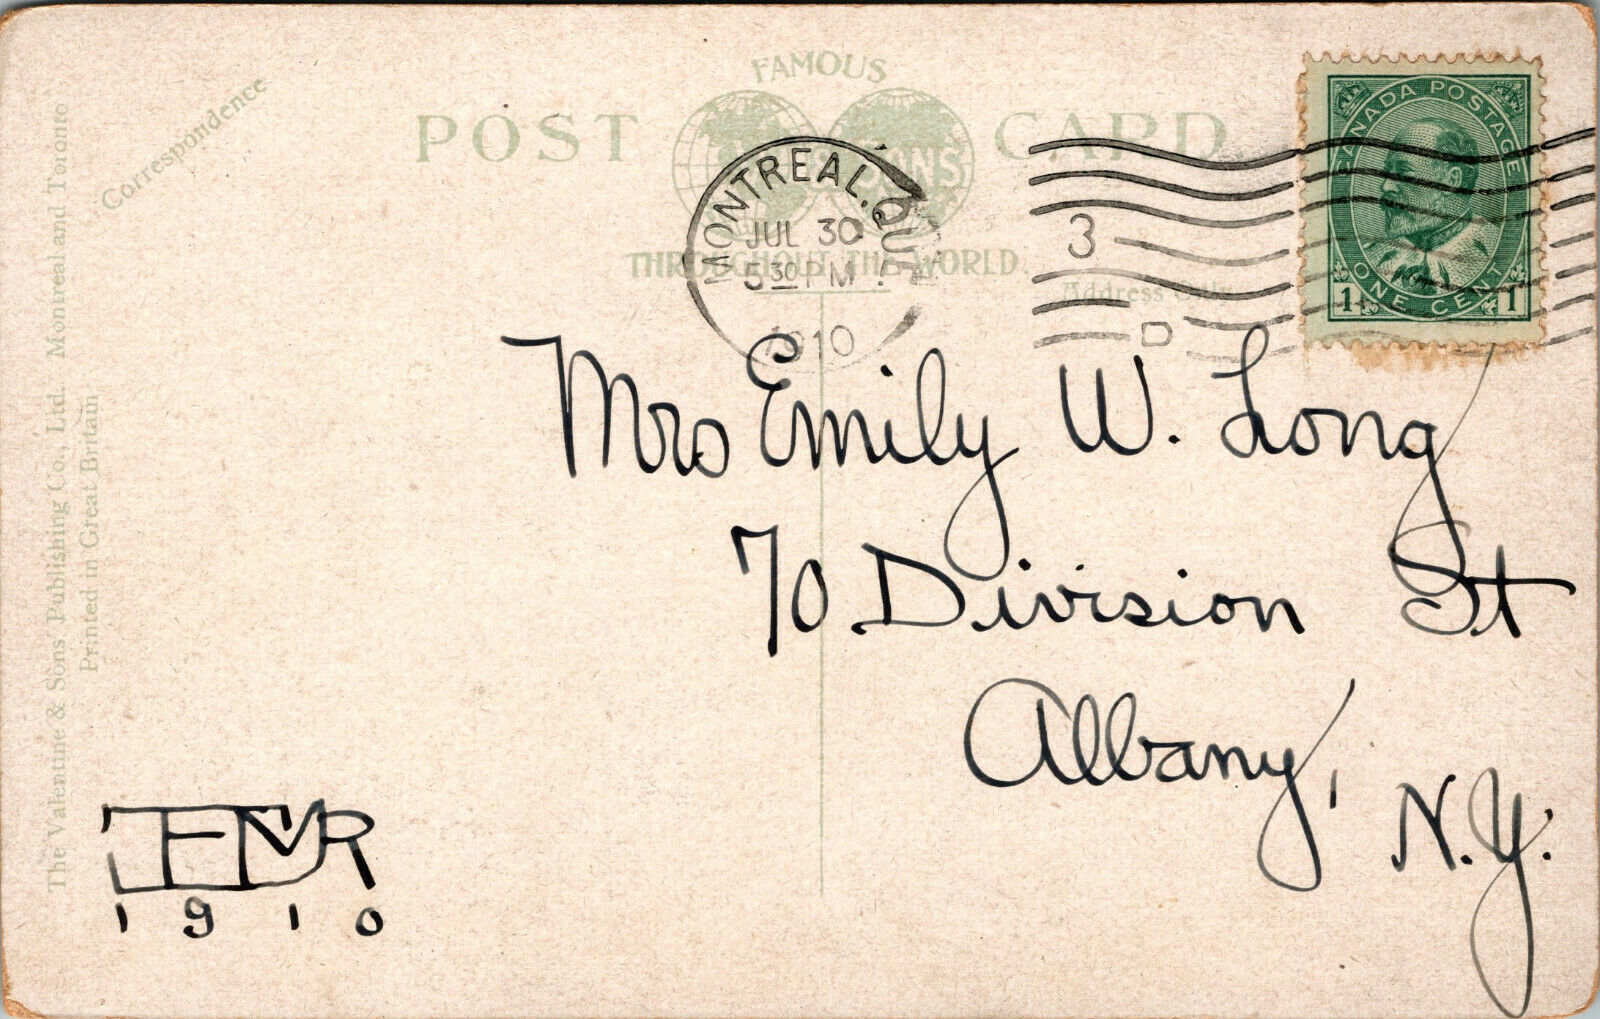 FAMOUS
POST CARD
SONS
THROUGHOUT THE WORLD.
Correspondence
Address Only
The Valentine & Sons' Publishing Co., Ltd. Montreal and Toronto
Printed in Great Britain
MONTREAL. QUE
JUL 30
5 30 PM
1910
3
D
CANADA POSTAGE
1 ONE CENT 1
Mrs Emily W. Long
70 Division St
Albany,
N.Y.
1910